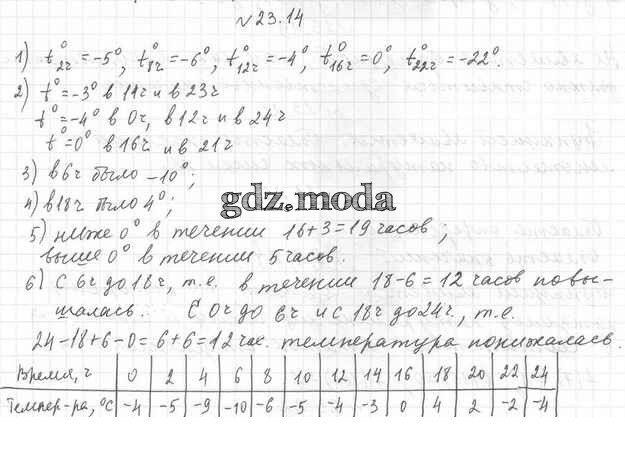 №23.14
1) t°2ч = -5°, t°8ч = -6°, t°12ч = -4°, t°16ч = 0°, t°22ч = -22°.
2) t° = -3° в 14ч и в 23ч
t° = -4° в 0ч, в 12ч и в 24ч
t° = 0° в 16ч и в 21ч
3) в 6ч было -10°;
4) в 18ч было 4°;
gdz.moda
5) ниже 0° в течении 16+3=19 часов;
выше 0° в течении 5 часов.
6) С 6ч до 18ч, т.е. в течении 18-6=12 часов повы-
шалась. С 0ч до 6ч и с 18ч до 24ч, т.е.
24-18+6-0=6+6=12час. температура понижалась.
Время, ч 0 2 4 6 8 10 12 14 16 18 20 22 24
Темпер-ра, °С -4 -5 -9 -10 -6 -5 -4 -3 0 4 2 -2 -4